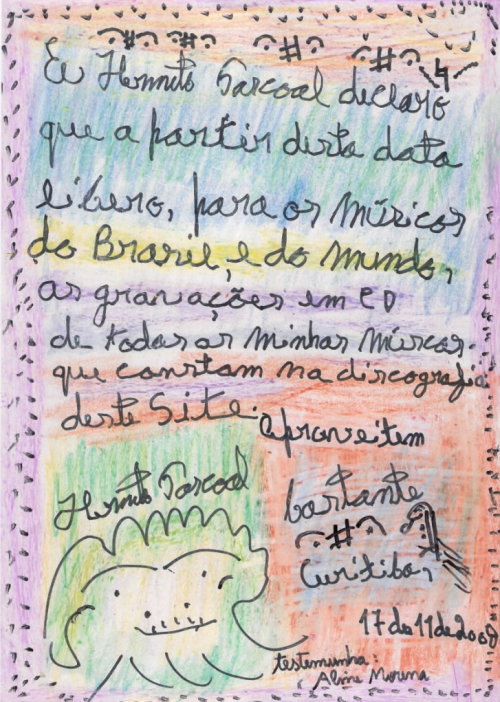 Eu Hermeto Pascoal declaro
que a partir desta data
libero, para os músicos
do Brasil, e do mundo,
as gravações em CD
de todas as minhas músicas.
que constam na discografia
deste Site.
Aproveitem
bastante
Hermeto Pascoal
Curitiba,
17 de 11 de 2008
testemunha:
Aline Morena